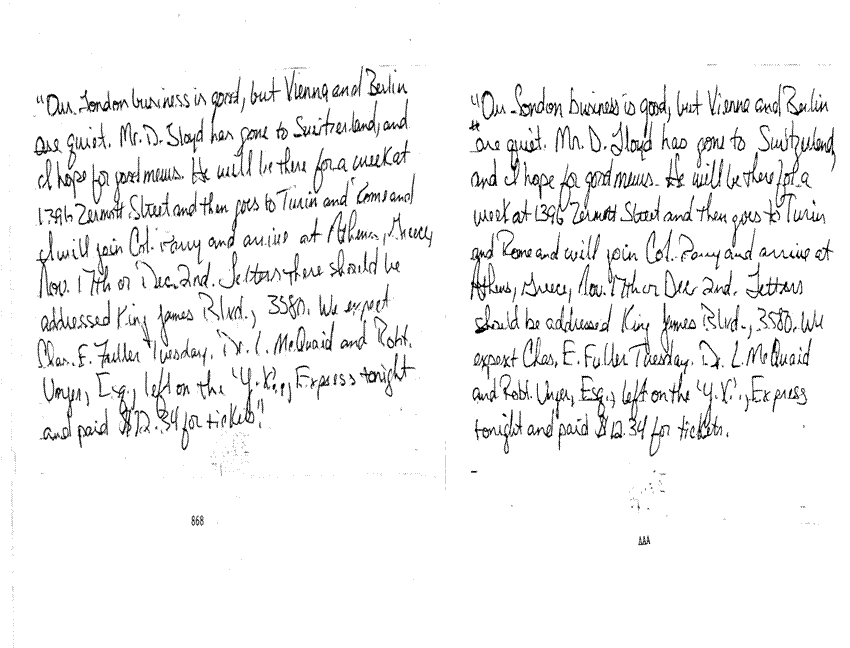 "Our London business is good, but Vienna and Berlin
are quiet. Mr. D. Lloyd has gone to Switzerland, and
I hope for good news. He will be there for a week at
1396 Zermott Street and then goes to Turin and Rome and
will join Col. Parry and arrive at Athens, Greece,
Nov. 17th or Dec. 2nd. Letters there should be
addressed King James Blvd., 3580. We expect
Chas. E. Fuller Tuesday. Dr. L. McQuaid and Robt.
Unger, Esq., left on the 'Y.X.', Express tonight
and paid $12.34 for tickets."
868
"Our London business is good, but Vienna and Berlin
are quiet. Mr. D. Lloyd has gone to Switzerland,
and I hope for good news. He will be there for a
week at 1396 Zermott Street and then goes to Turin
and Rome and will join Col. Parry and arrive at
Athens, Greece, Nov. 17th or Dec 2nd. Letters
should be addressed King James Blvd., 3580. We
expext Chas. E. Fuller Tuesday. Dr. L. McQuaid
and Robt. Unger, Esq., left on the 'Y.X.', Express
tonight and paid $12.34 for tickets.
AAA